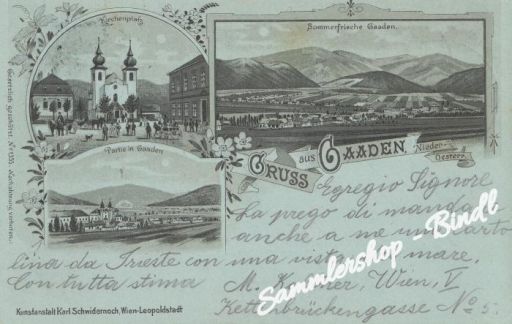 Kirchenplatz.
Sommerfrische Gaaden.
Oesterreich. geschützt No 1335. Nachahmung verboten.
Partie in Gaaden
GRUSS aus GAADEN.
Nieder-
Oesterr.
Egregio Signore
La prego di manda
anche a me una carto
lina da Trieste con una vista mare,
Con tutta stima M. Wien, V
Kettenbrückengasse No 5.
Sammlershop - Bindl
Kunstanstalt Karl Schwidernoch, Wien-Leopoldstadt